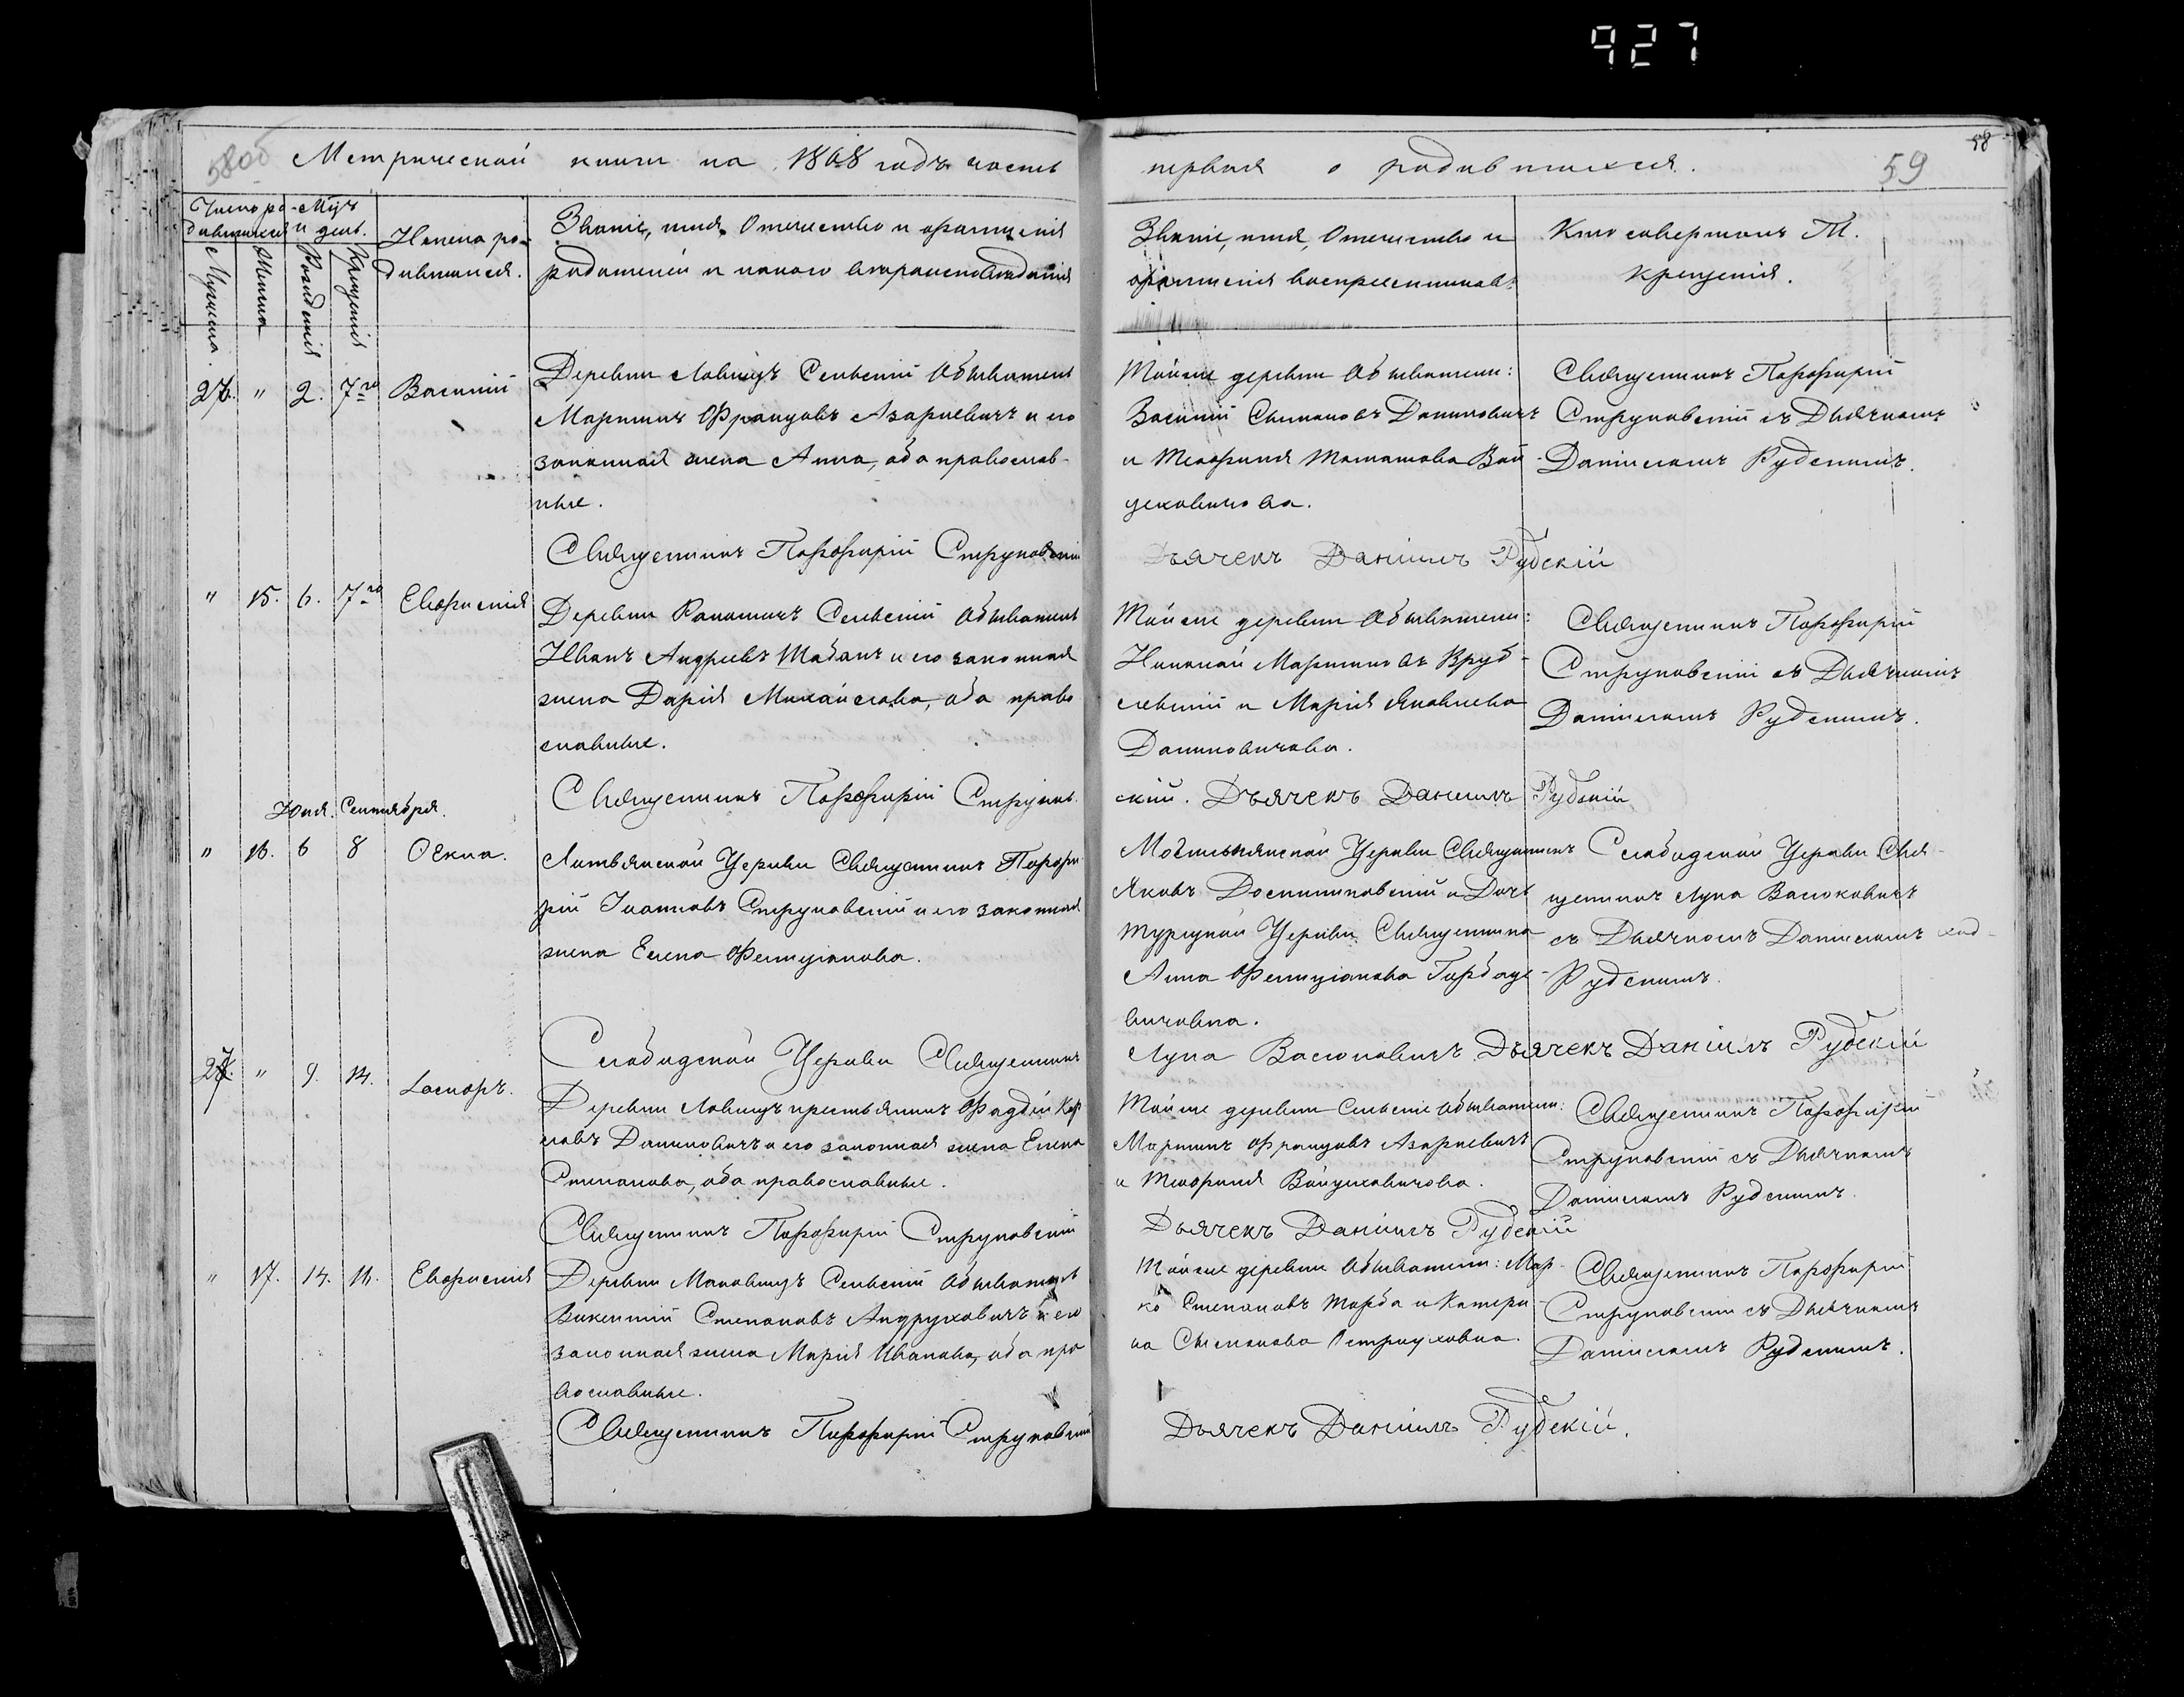 927
580б Метрической книги на 1868 годъ часть
первая о родившихся. 59 58
Число ро-
дившихся
Мужеска
Женска
Мѣс.
и день.
Рожденія
Крещенія
Имена ро-
дившихся.
Званіе, имя, Отчество и фамилія
родителей и какого вѣроисповѣданія
Званіе, имя, Отчество и
фамилія воспріемниковъ.
Кто совершалъ Т.
крещенія.
27. " 2. 7го Василій
Деревни Ловищъ Сельскій Обыватель
Мартинъ Францовъ Азаркевичъ и его
законная жена Анна, оба православ-
ные.
Священникъ Порфирій Струковскій
Той же деревни Обыватели:
Василій Симановъ Данилович
и Теофиля Томашова Вой-
цеховичова.
Дьячекъ Даніилъ Рубскій
Священникъ Порфирій
Струковскій съ Дьячкомъ
Даніиломъ Рубскимъ.
" 15. 6. 7го Евфимія
Деревни Сельскій Обыватель
Иванъ Андреевъ Шабанъ и его законная
жена Дарія Михайлова, оба право
славные.
Священникъ Порфирій Струков-
Той же деревни Обыватели:
Николай Мартиновъ Вруб-
левскій и Марія Яковлева
Даниловичова.
скій. Дьячекъ Даніилъ Рубскій
Священникъ Порфирій
Струковскій съ Дьячкомъ
Даніиломъ Рубскимъ.
Юля. Сентября.
" 16. 6 8 Ѳекла.
Церкви Священникъ Порфи
рій Іоанновъ Струковскій и его законная
жена Елена Фелиціанова.
Слободской Церкви Священникъ
Церкви Священникъ
Яковъ и Дочь
Турецкой Церкви Священника
Анна Фелиціанова Горбаце-
вичовна.
Лука Васюковичъ. Дьячекъ Даніилъ Рубскій
Слободской Церкви Свя-
щенникъ Лука Васюковичъ
съ Дьячкомъ Даніиломъ
Рубскимъ.
27 " 9. 14. Гаспоръ.
Деревни Ловищъ крестьянинъ Фаддей Кар
ловъ Даниловичъ и его законная жена Елена
Степанова, оба православные.
Священникъ Порфирій Струковскій
Той же деревни Сельскіе Обыватели:
Мартинъ Францовъ Азаркевичъ
и Теофиля Войцеховичова.
Дьячекъ Даніилъ Рубскій
Священникъ Порфирій
Струковскій съ Дьячкомъ
Даніиломъ Рубскимъ.
" 17. 14. Евфимія
Деревни Маковищъ Сельскій Обыватель
Викентій Степановъ Андруховичъ и его
законная жена Марія Иванова, оба пра
вославные.
Священникъ Порфирій Струковскій
Той же деревни Обыватели: Мар-
ко Степановъ Торба и Катери-
на Симанова
Дьячекъ Даніилъ Рубскій.
Священникъ Порфирій
Струковскій съ Дьячкомъ
Даніиломъ Рубскимъ.